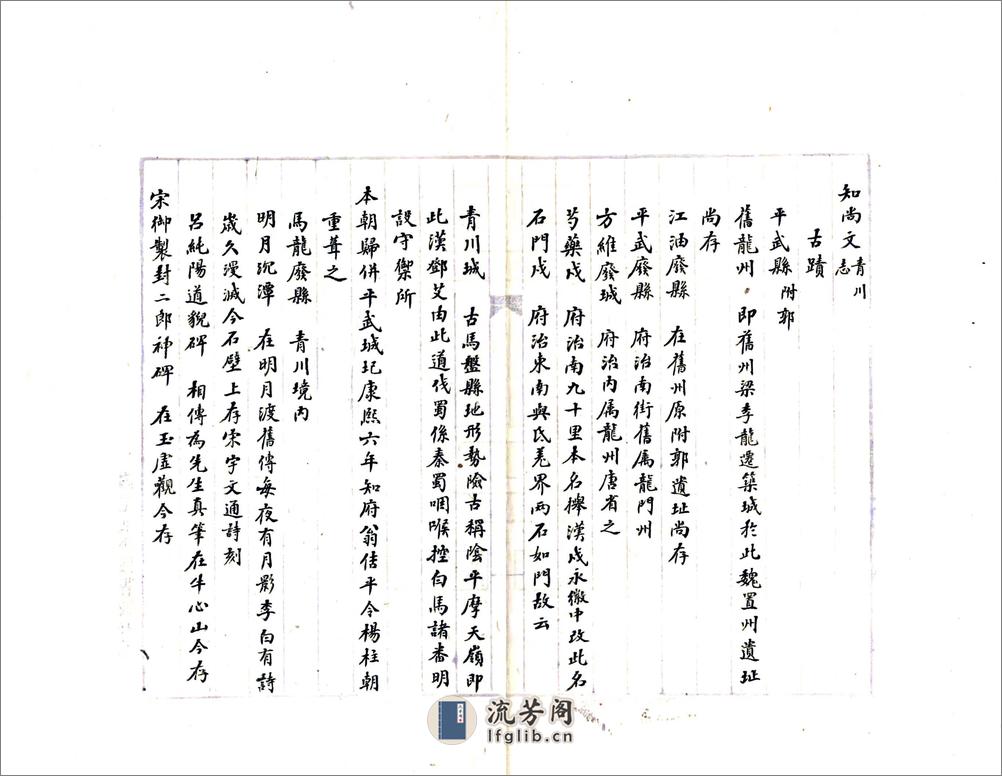 知尚文青川志
古蹟
平武縣附郭
舊龍州 即舊州梁李龍遷築城於此魏置州遺址
尚存
江油廢縣 在舊州原附郭遺址尚存
平武廢縣 府治南街舊属龍門州
方維廢城 府治内属龍州唐省之
芍藥戍 府治南九十里本名攑漢戍永徽中攺此名
石門戍 府治東南與氐羌界两石如門故云
青川城 古馬盤縣地形勢險古稱陰平摩天嶺即
此漢鄧艾由此道伐蜀係秦蜀咽喉控白馬諸畨明
設守禦所
本朝歸併平武城圮康熈六年知府翁佶平令楊柱朝
重葺之
馬龍廢縣 青川境内
明月沉潭 在明月渡舊傳每夜有月影李白有詩
歲久漫滅今石壁上存宋宇文通詩刻
呂純陽道貌碑 相傳為先生真筆在牛心山今存
宋御製封二郎神碑 在玉虛觀今存
流芳阁
lfglib.cn